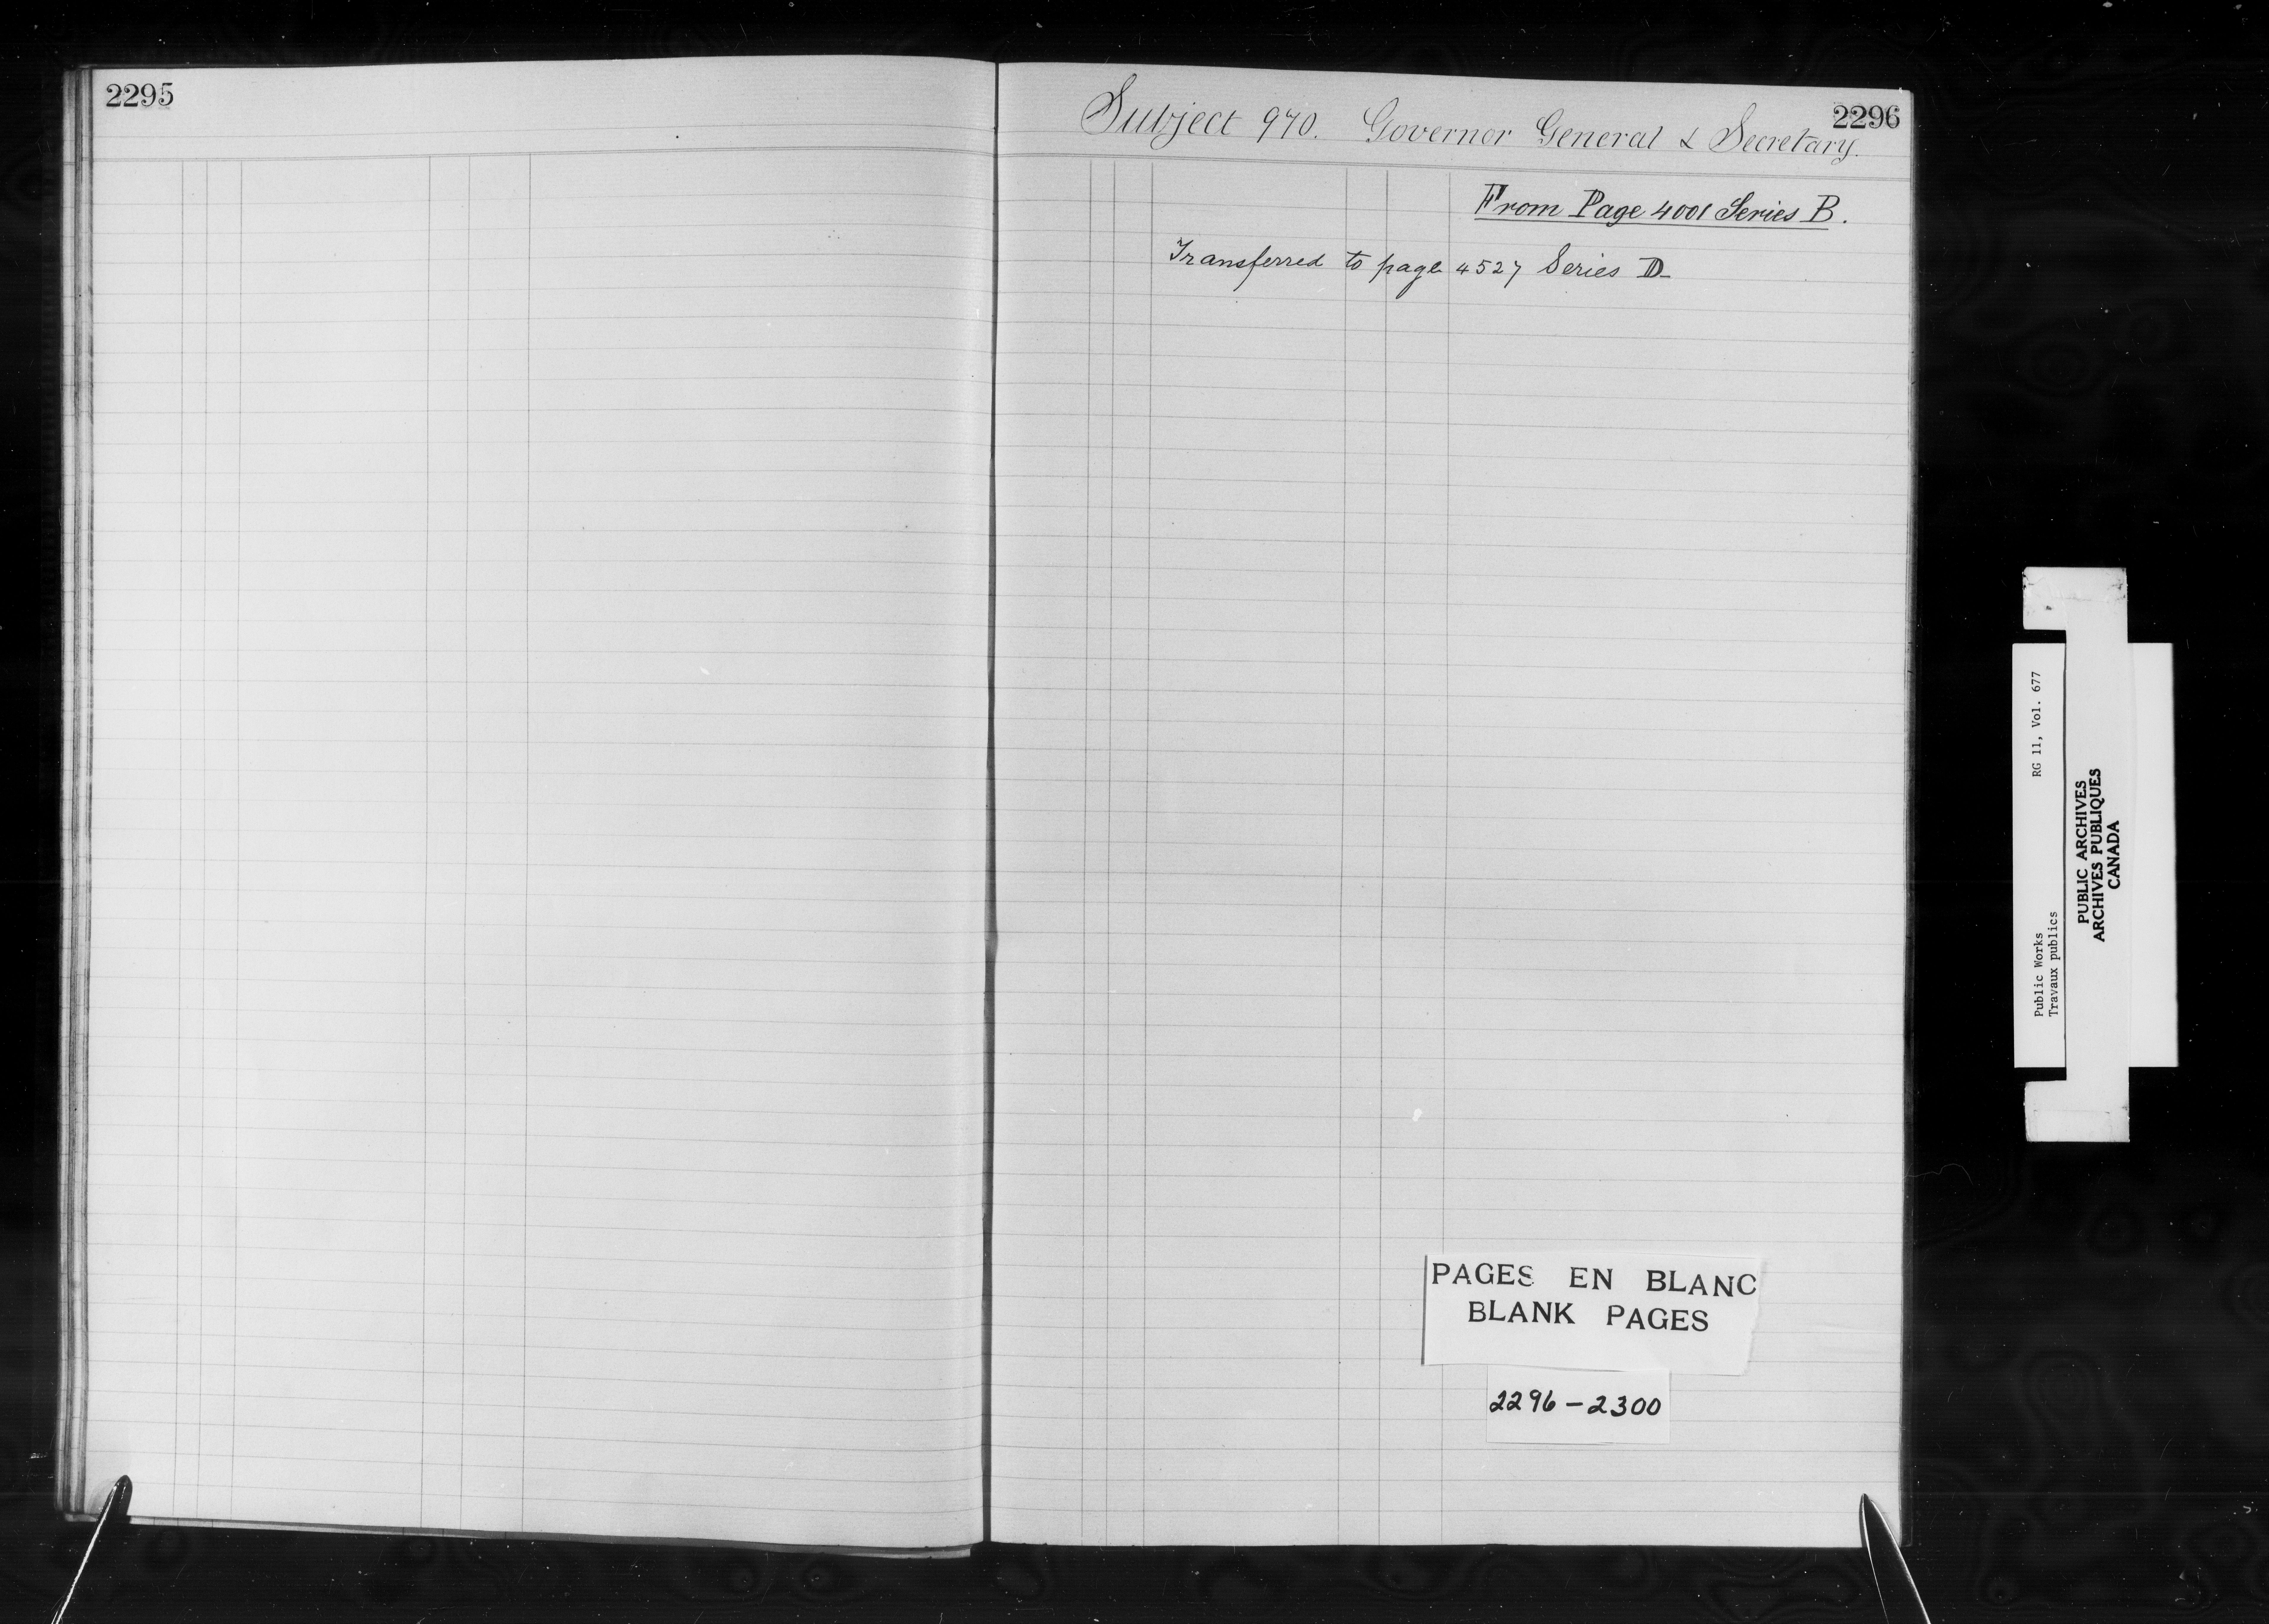 2295
2296
Subject 970. Governor General & Secretary.
From Page 4001 Series B.
Transferred to page 4527 Series D
PAGES EN BLANC
BLANK PAGES
2296-2300
Public Works RG 11, Vol. 677
Travaux publics
PUBLIC ARCHIVES
ARCHIVES PUBLIQUES
CANADA